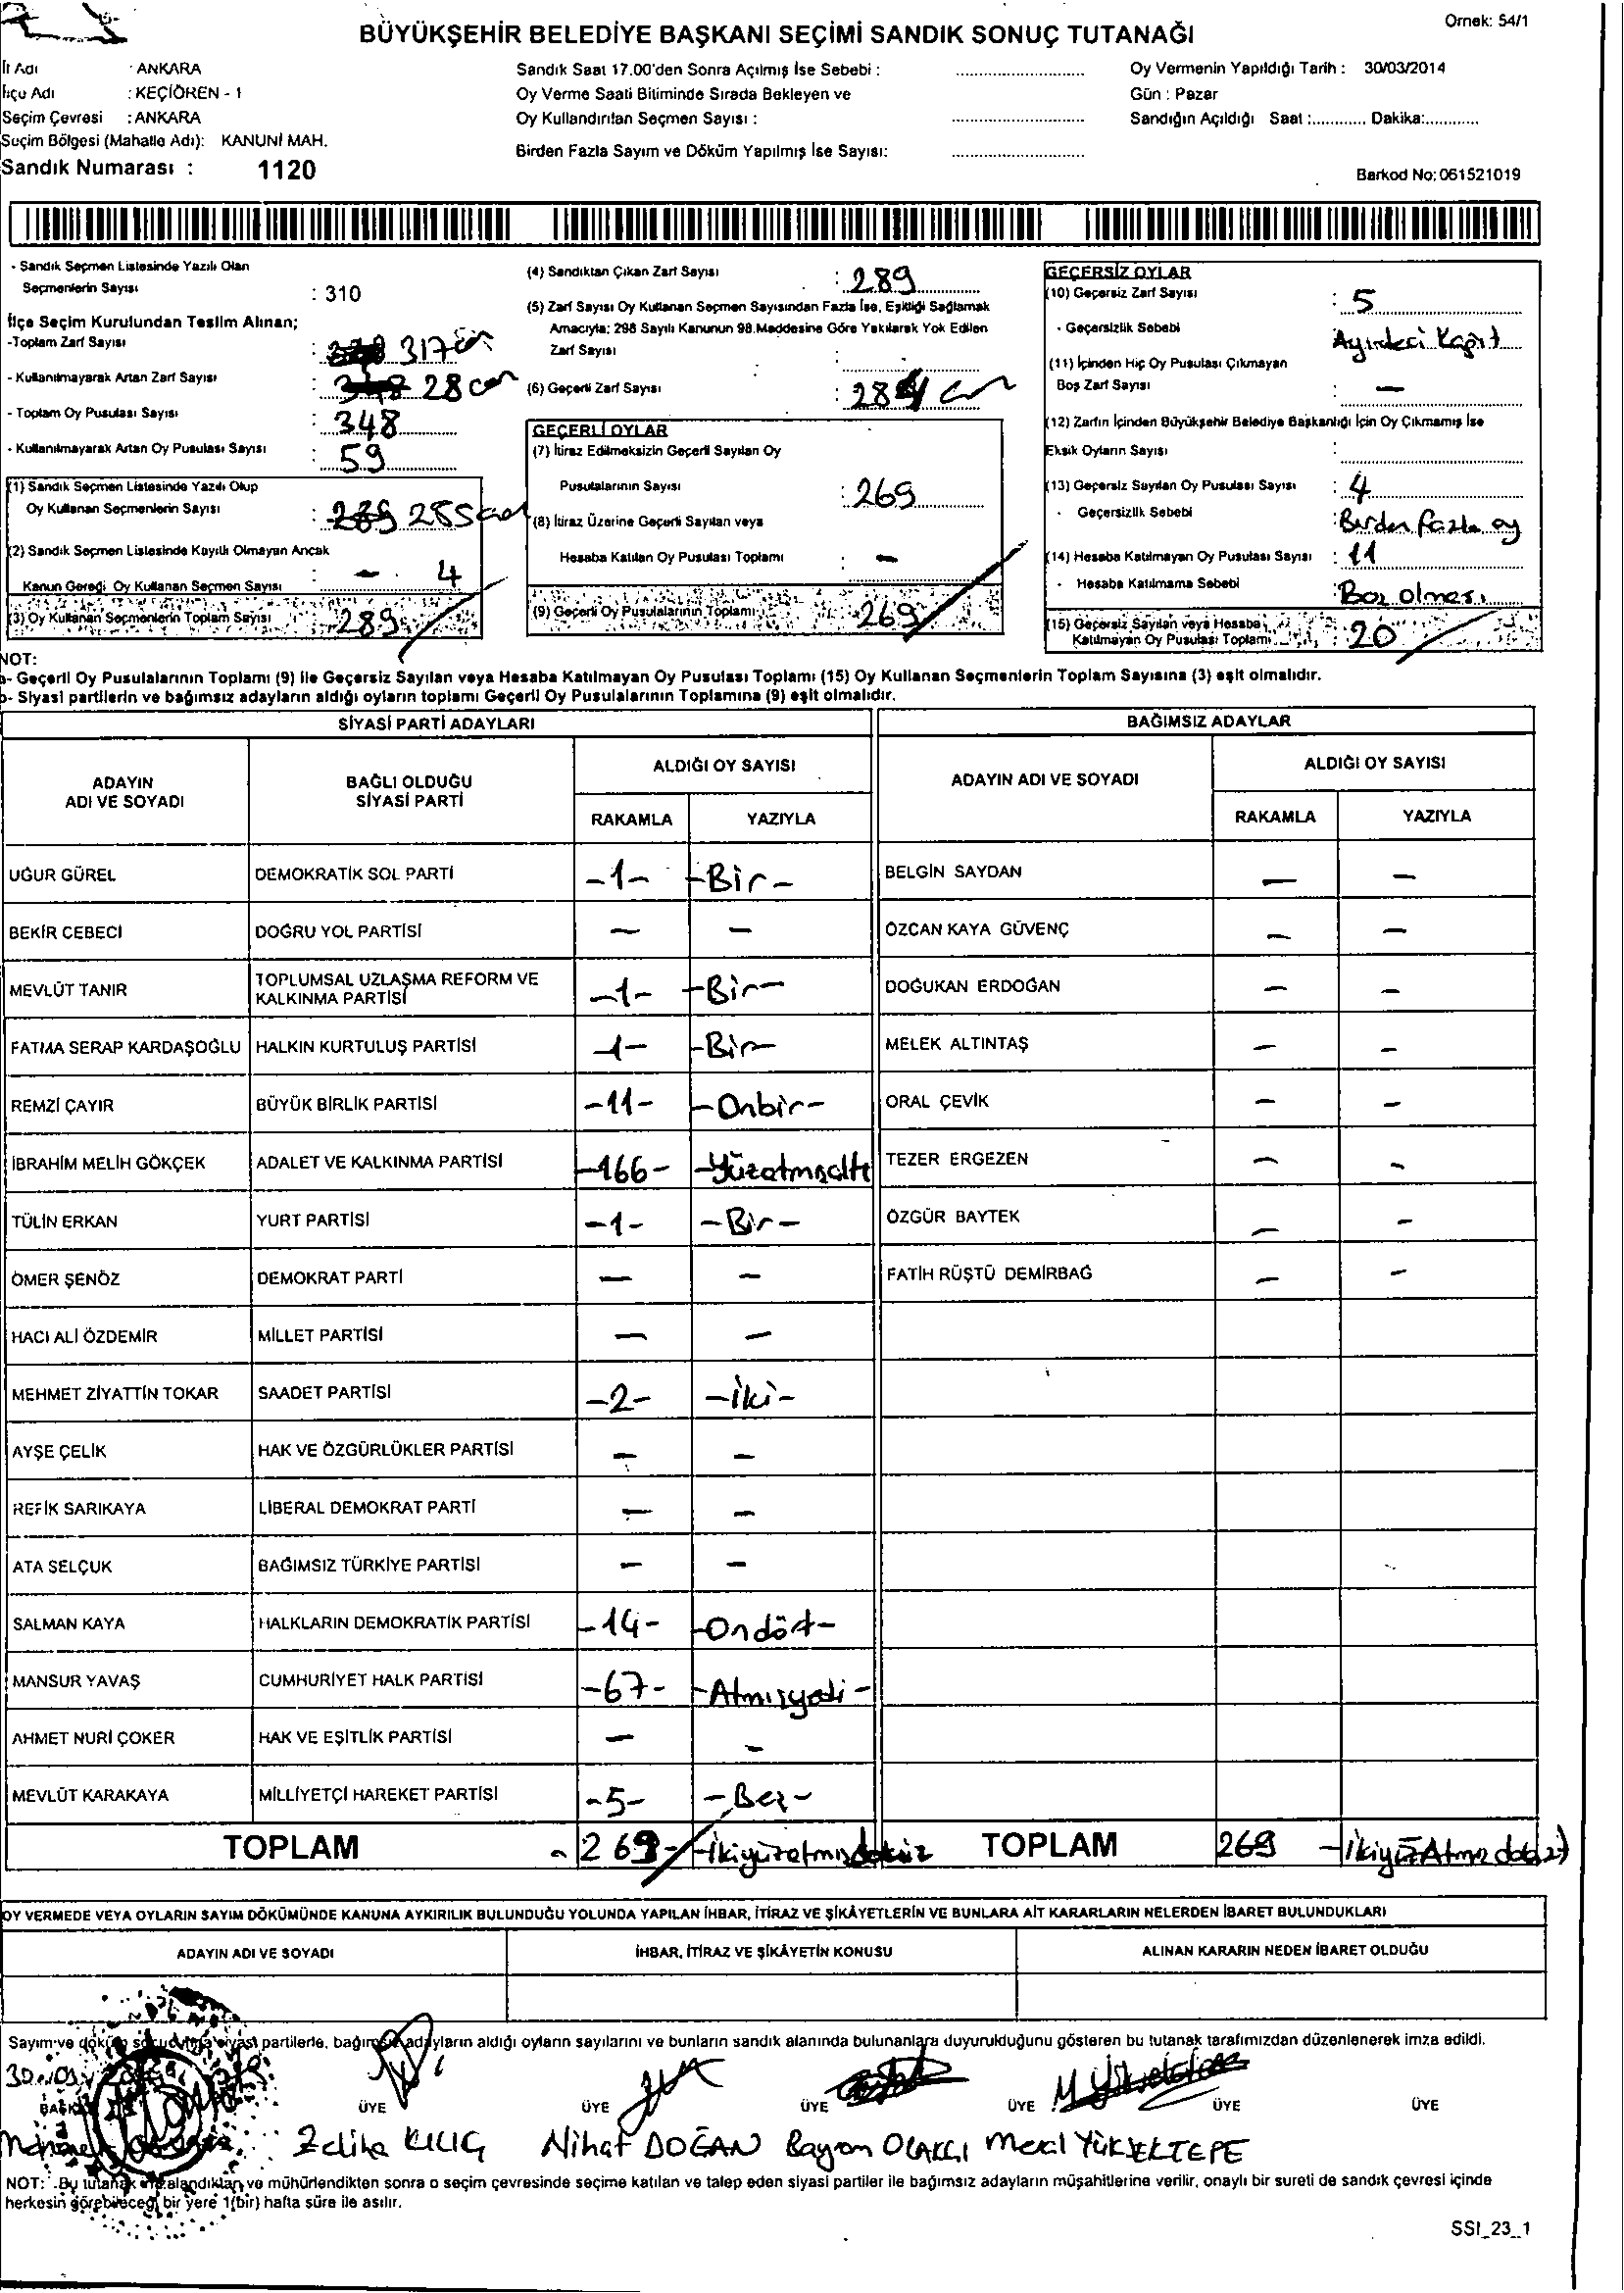 Örnek: 54/1
BÜYÜKŞEHİR BELEDİYE BAŞKANI SEÇİMİ SANDIK SONUÇ TUTANAĞI
İl Adı : ANKARA
İlçe Adı : KEÇİÖREN - 1
Seçim Çevresi : ANKARA
Seçim Bölgesi (Mahalle Adı): KANUNİ MAH.
Sandık Numarası : 1120
Sandık Saat 17.00'den Sonra Açılmış İse Sebebi :
Oy Verme Saati Bitiminde Sırada Bekleyen ve
Oy Kullandırılan Seçmen Sayısı :
Birden Fazla Sayım ve Döküm Yapılmış İse Sayısı:
Oy Vermenin Yapıldığı Tarih : 30/03/2014
Gün : Pazar
Sandığın Açıldığı Saat :............ Dakika:...........
Barkod No: 061521019
- Sandık Seçmen Listesinde Yazılı Olan
Seçmenlerin Sayısı : 310
İlçe Seçim Kurulundan Teslim Alınan;
-Toplam Zarf Sayısı : 317
- Kullanılmayarak Artan Zarf Sayısı : 28
- Toplam Oy Pusulası Sayısı : 348
- Kullanılmayarak Artan Oy Pusulası Sayısı : 59
(1) Sandık Seçmen Listesinde Yazılı Olup
Oy Kullanan Seçmenlerin Sayısı : 289 285
(2) Sandık Seçmen Listesinde Kayıtlı Olmayan Ancak
Kanun Gereği Oy Kullanan Seçmen Sayısı : - 4
(3) Oy Kullanan Seçmenlerin Toplam Sayısı : 289
(4) Sandıktan Çıkan Zarf Sayısı : 289
(5) Zarf Sayısı Oy Kullanan Seçmen Sayısından Fazla İse, Eşitliği Sağlamak
Amacıyla; 298 Sayılı Kanunun 98.Maddesine Göre Yakılarak Yok Edilen
Zarf Sayısı :
(6) Geçerli Zarf Sayısı : 284
GEÇERLİ OYLAR
(7) İtiraz Edilmeksizin Geçerli Sayılan Oy
Pusulalarının Sayısı : 269
(8) İtiraz Üzerine Geçerli Sayılan veya
Hesaba Katılan Oy Pusulası Toplamı : -
(9) Geçerli Oy Pusulalarının Toplamı : 269
GEÇERSİZ OYLAR
(10) Geçersiz Zarf Sayısı : 5
- Geçersizlik Sebebi
(11) İçinden Hiç Oy Pusulası Çıkmayan
Boş Zarf Sayısı : -
(12) Zarfın İçinden Büyükşehir Belediye Başkanlığı İçin Oy Çıkmamış İse
Eksik Oyların Sayısı :
(13) Geçersiz Sayılan Oy Pusulası Sayısı : 4
- Geçersizlik Sebebi Birden fazla oy
(14) Hesaba Katılmayan Oy Pusulası Sayısı : 11
- Hesaba Katılmama Sebebi Boş olması
(15) Geçersiz Sayılan veya Hesaba
Katılmayan Oy Pusulası Toplamı : 20
NOT:
a- Geçerli Oy Pusulalarının Toplamı (9) ile Geçersiz Sayılan veya Hesaba Katılmayan Oy Pusulası Toplamı (15) Oy Kullanan Seçmenlerin Toplam Sayısına (3) eşit olmalıdır.
b- Siyasi partilerin ve bağımsız adayların aldığı oyların toplamı Geçerli Oy Pusulalarının Toplamına (9) eşit olmalıdır.
SİYASİ PARTİ ADAYLARI
ADAYIN ADI VE SOYADI BAĞLI OLDUĞU SİYASİ PARTİ ALDIĞI OY SAYISI RAKAMLA YAZIYLA
UĞUR GÜREL DEMOKRATİK SOL PARTİ -1- -Bir-
BEKİR CEBECİ DOĞRU YOL PARTİSİ - -
MEVLÜT TANIR TOPLUMSAL UZLAŞMA REFORM VE KALKINMA PARTİSİ -1- -Bir-
FATMA SERAP KARDAŞOĞLU HALKIN KURTULUŞ PARTİSİ -1- -Bir-
REMZİ ÇAYIR BÜYÜK BİRLİK PARTİSİ -11- -Onbir-
İBRAHİM MELİH GÖKÇEK ADALET VE KALKINMA PARTİSİ -166- -Yüzatmışaltı
TÜLİN ERKAN YURT PARTİSİ -1- -Bir-
ÖMER ŞENÖZ DEMOKRAT PARTİ - -
HACI ALİ ÖZDEMİR MİLLET PARTİSİ - -
MEHMET ZİYATTİN TOKAR SAADET PARTİSİ -2- -İki-
AYŞE ÇELİK HAK VE ÖZGÜRLÜKLER PARTİSİ - -
REFİK SARIKAYA LİBERAL DEMOKRAT PARTİ - -
ATA SELÇUK BAĞIMSIZ TÜRKİYE PARTİSİ - -
SALMAN KAYA HALKLARIN DEMOKRATİK PARTİSİ -14- -Ondört-
MANSUR YAVAŞ CUMHURİYET HALK PARTİSİ -67- -Atmışyedi-
AHMET NURİ ÇOKER HAK VE EŞİTLİK PARTİSİ - -
MEVLÜT KARAKAYA MİLLİYETÇİ HAREKET PARTİSİ -5- -Beş-
TOPLAM -269- -İkiyüzatmışdokuz
BAĞIMSIZ ADAYLAR
ADAYIN ADI VE SOYADI ALDIĞI OY SAYISI RAKAMLA YAZIYLA
BELGİN SAYDAN - -
ÖZCAN KAYA GÜVENÇ - -
DOĞUKAN ERDOĞAN - -
MELEK ALTINTAŞ - -
ORAL ÇEVİK - -
TEZER ERGEZEN - -
ÖZGÜR BAYTEK - -
FATİH RÜŞTÜ DEMİRBAĞ - -
TOPLAM 269
OY VERMEDE VEYA OYLARIN SAYIM DÖKÜMÜNDE KANUNA AYKIRILIK BULUNDUĞU YOLUNDA YAPILAN İHBAR, İTİRAZ VE ŞİKÂYETLERİN VE BUNLARA AİT KARARLARIN NELERDEN İBARET BULUNDUKLARI
ADAYIN ADI VE SOYADI İHBAR, İTİRAZ VE ŞİKÂYETİN KONUSU ALINAN KARARIN NEDEN İBARET OLDUĞU
Sayım ve döküm sonucunda siyasi partilerle, bağımsız adayların aldığı oyların sayılarını ve bunların sandık alanında bulunanlara duyurulduğunu gösteren bu tutanak tarafımızdan düzenlenerek imza edildi.
BAŞKAN ÜYE ÜYE ÜYE ÜYE ÜYE ÜYE
Zeliha KILIÇ Nihat DOĞAN Meral YÜKSELTEPE
NOT: Bu tutanak imzalandıktan ve mühürlendikten sonra o seçim çevresinde seçime katılan ve talep eden siyasi partiler ile bağımsız adayların müşahitlerine verilir, onaylı bir sureti de sandık çevresi içinde
herkesin görebileceği bir yere 1(bir) hafta süre ile asılır.
SSI_23_1